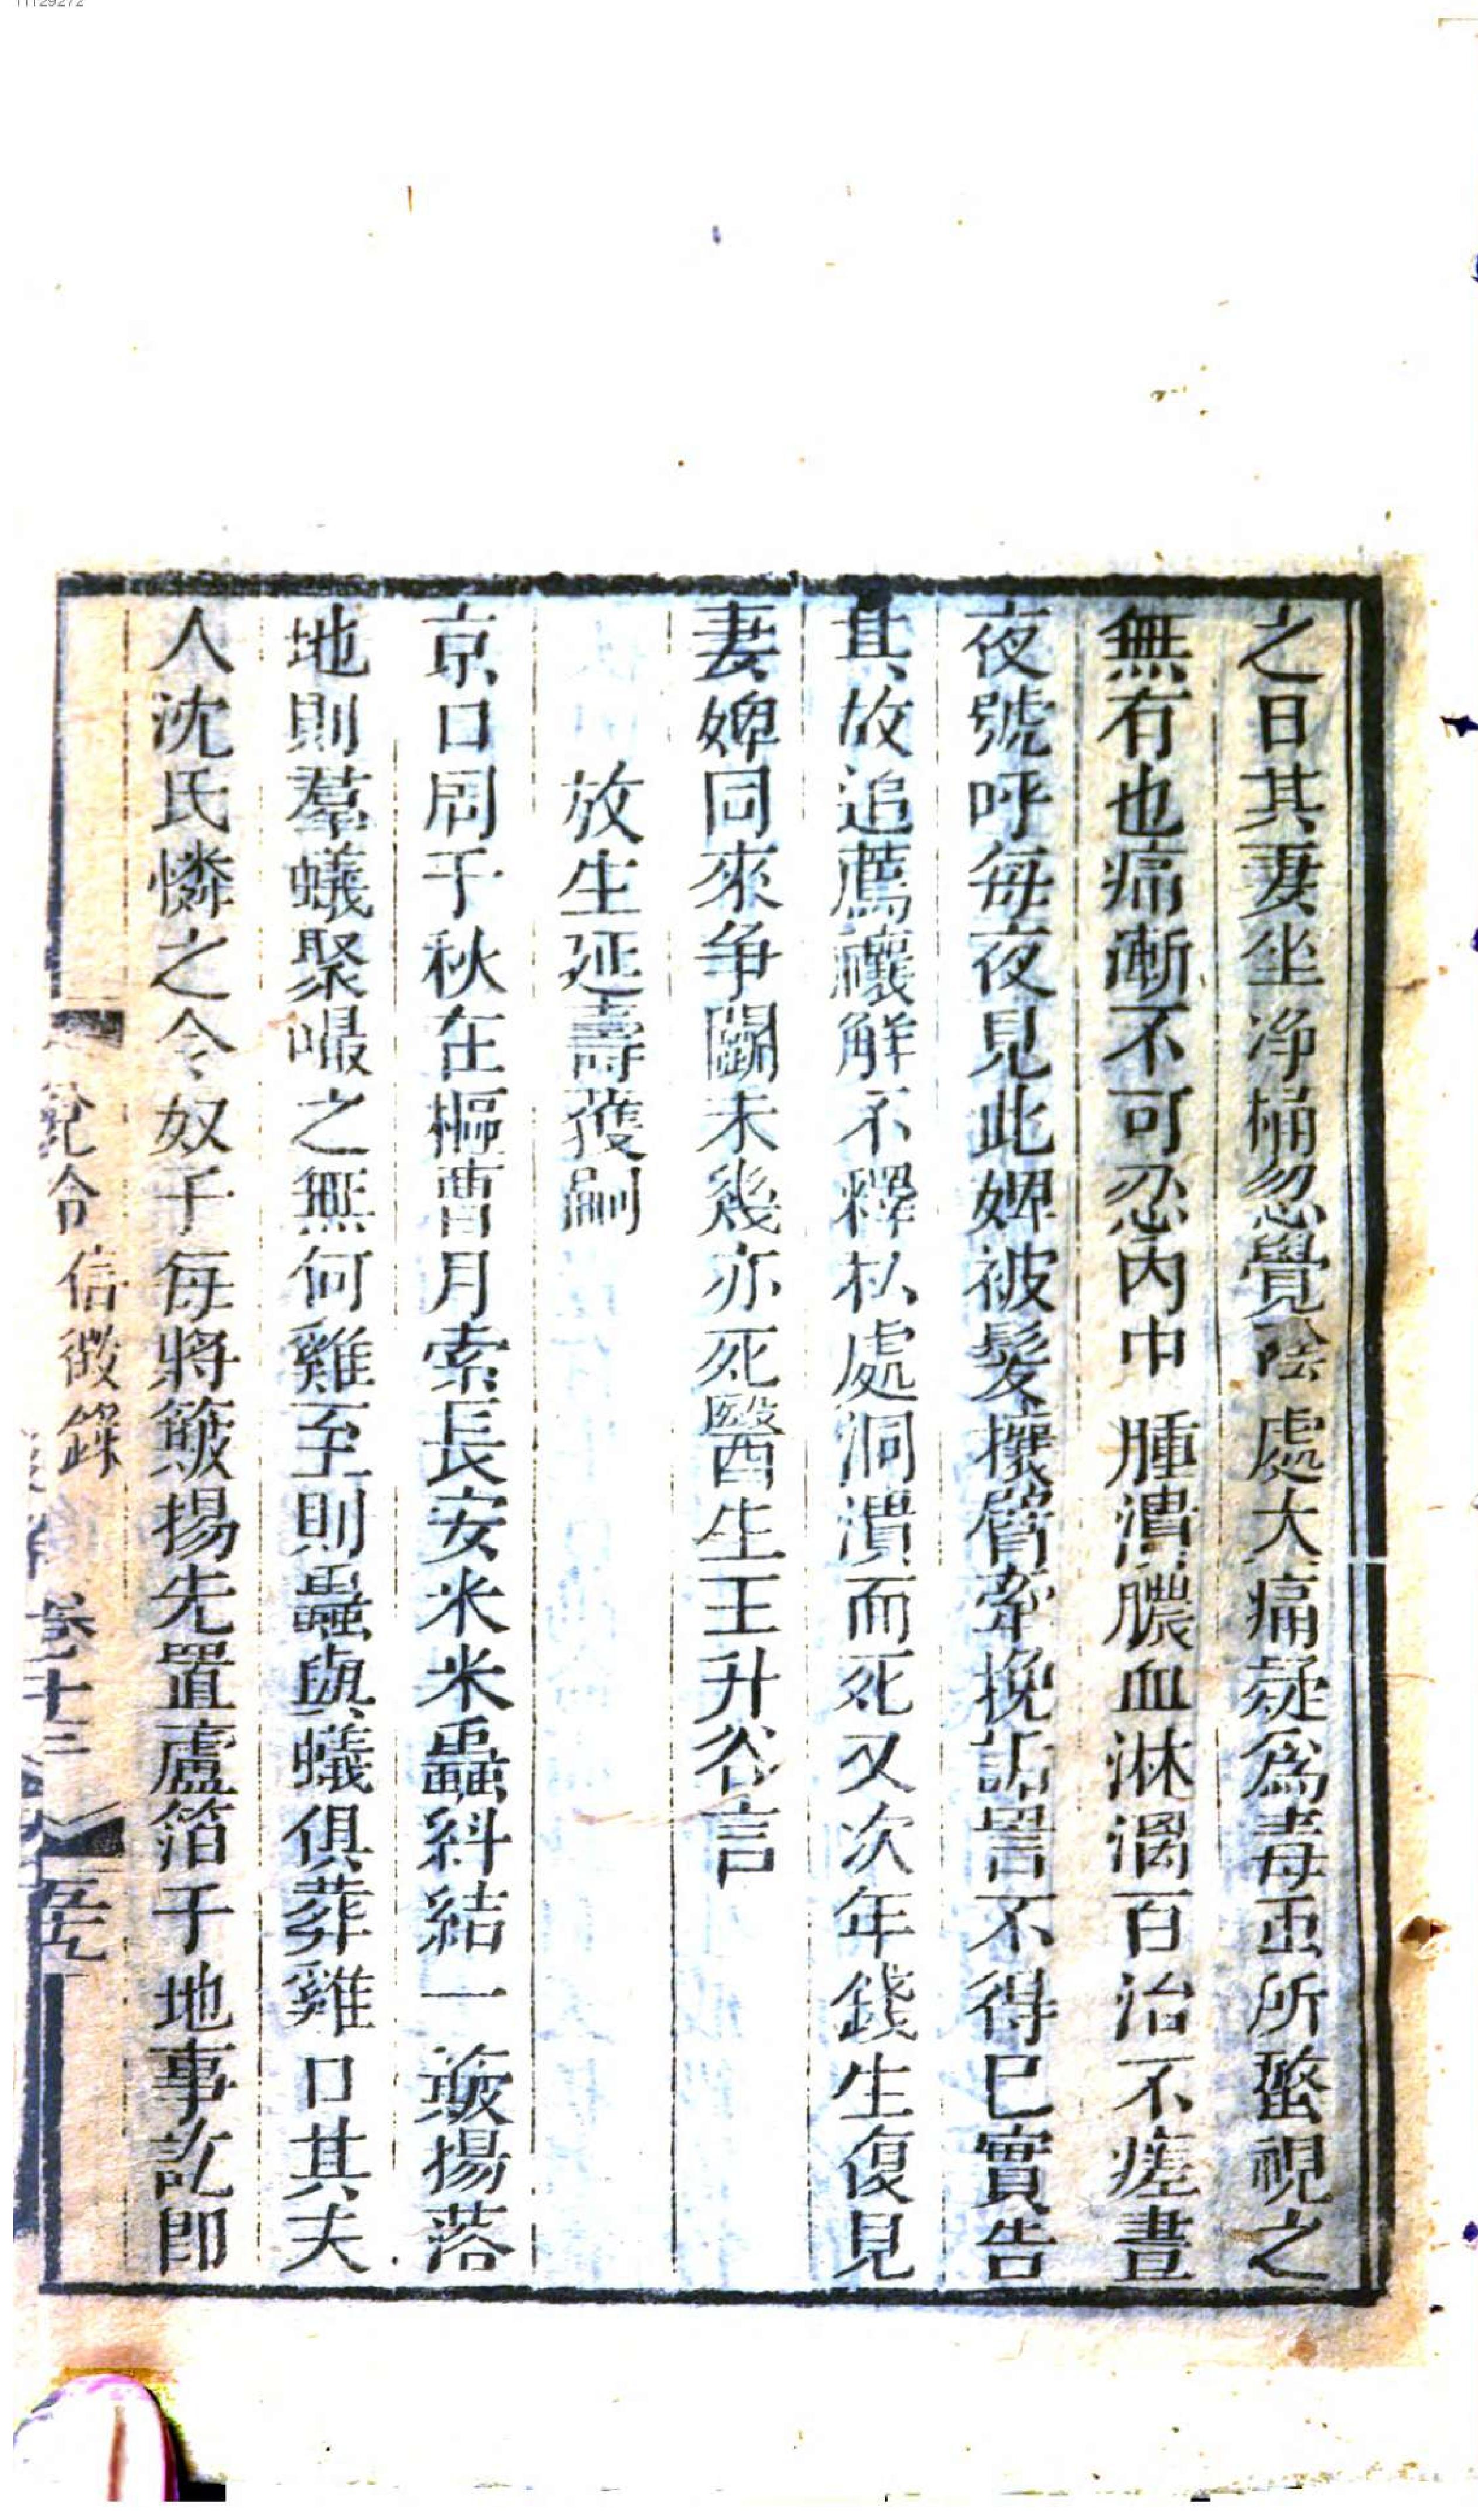 之日其妻坐净桶忽覺陰處大痛疑為毒虫所螫視之
無有也痛漸不可忍內中腫潰膿血淋漓百治不瘥晝
夜號呼每夜見此婢被髮攘臂牽挽詬詈不得已實告
其故追薦禳解不釋私處洞潰而死又次年錢生復見
妻婢同來争鬭未幾亦死醫生王升谷言
放生延壽獲嗣
京口周于秋在樞曹月索長安米米蟲糾結一簸揚落
地則羣蟻聚嘬之無何雞至則蟲與蟻俱葬雞口其夫
人沈氏憐之令奴子每將簸揚先置蘆箔于地事訖即
信徵錄
卷十三